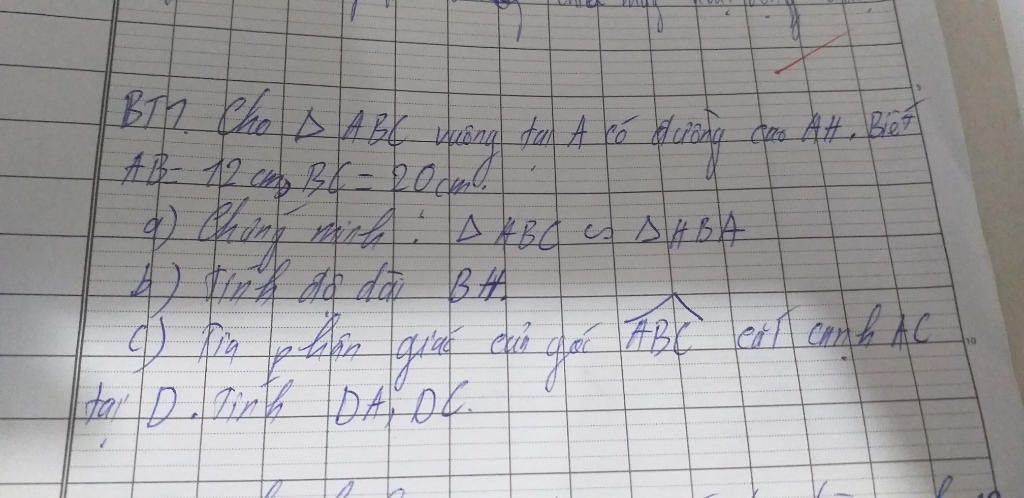 BT1. Cho Δ ABC vuông tại A có đường cao AH. Biết
AB = 12 cm, BC = 20 cm.
a) Chứng minh : Δ ABC ∽ Δ HBA
b) Tính độ dài BH.
c) Tia phân giác của góc \widehat{ABC} cắt cạnh AC
tại D. Tính DA, DC.